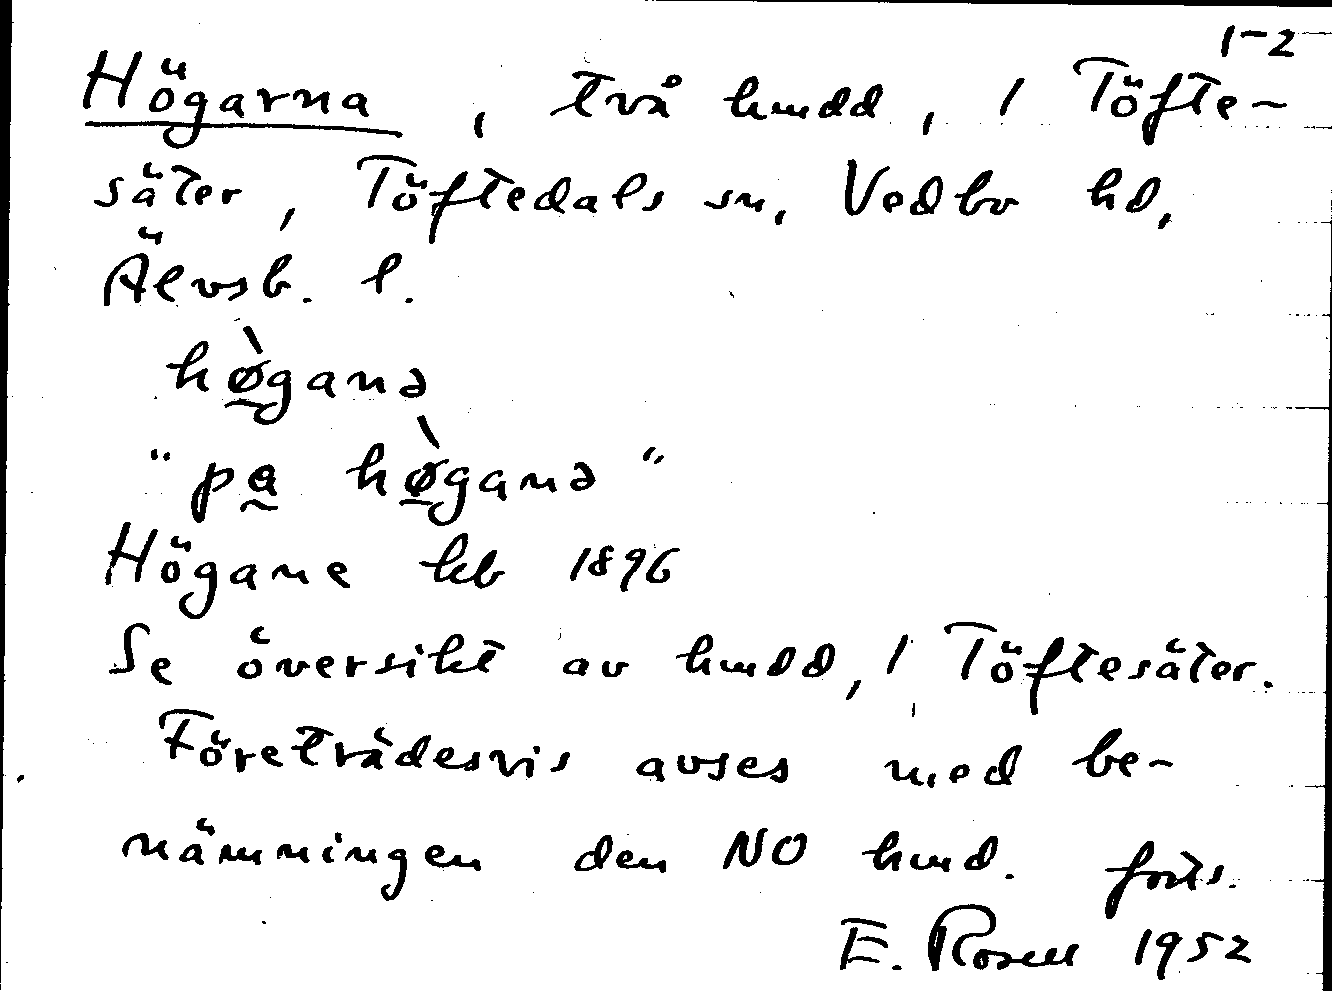 1-2
Högarna, två hmdd, / Töfte-
säter, Töftedals sn, Vedbo hd,
Älvsb. l.
hø̀ganə
"pa hø̀ganə"
Högane kb 1896
Se översikt av hmdd, / Töftesäter.
Företrädesvis avses med be-
nämningen den NO hmd. forts.
E. Rosell 1952